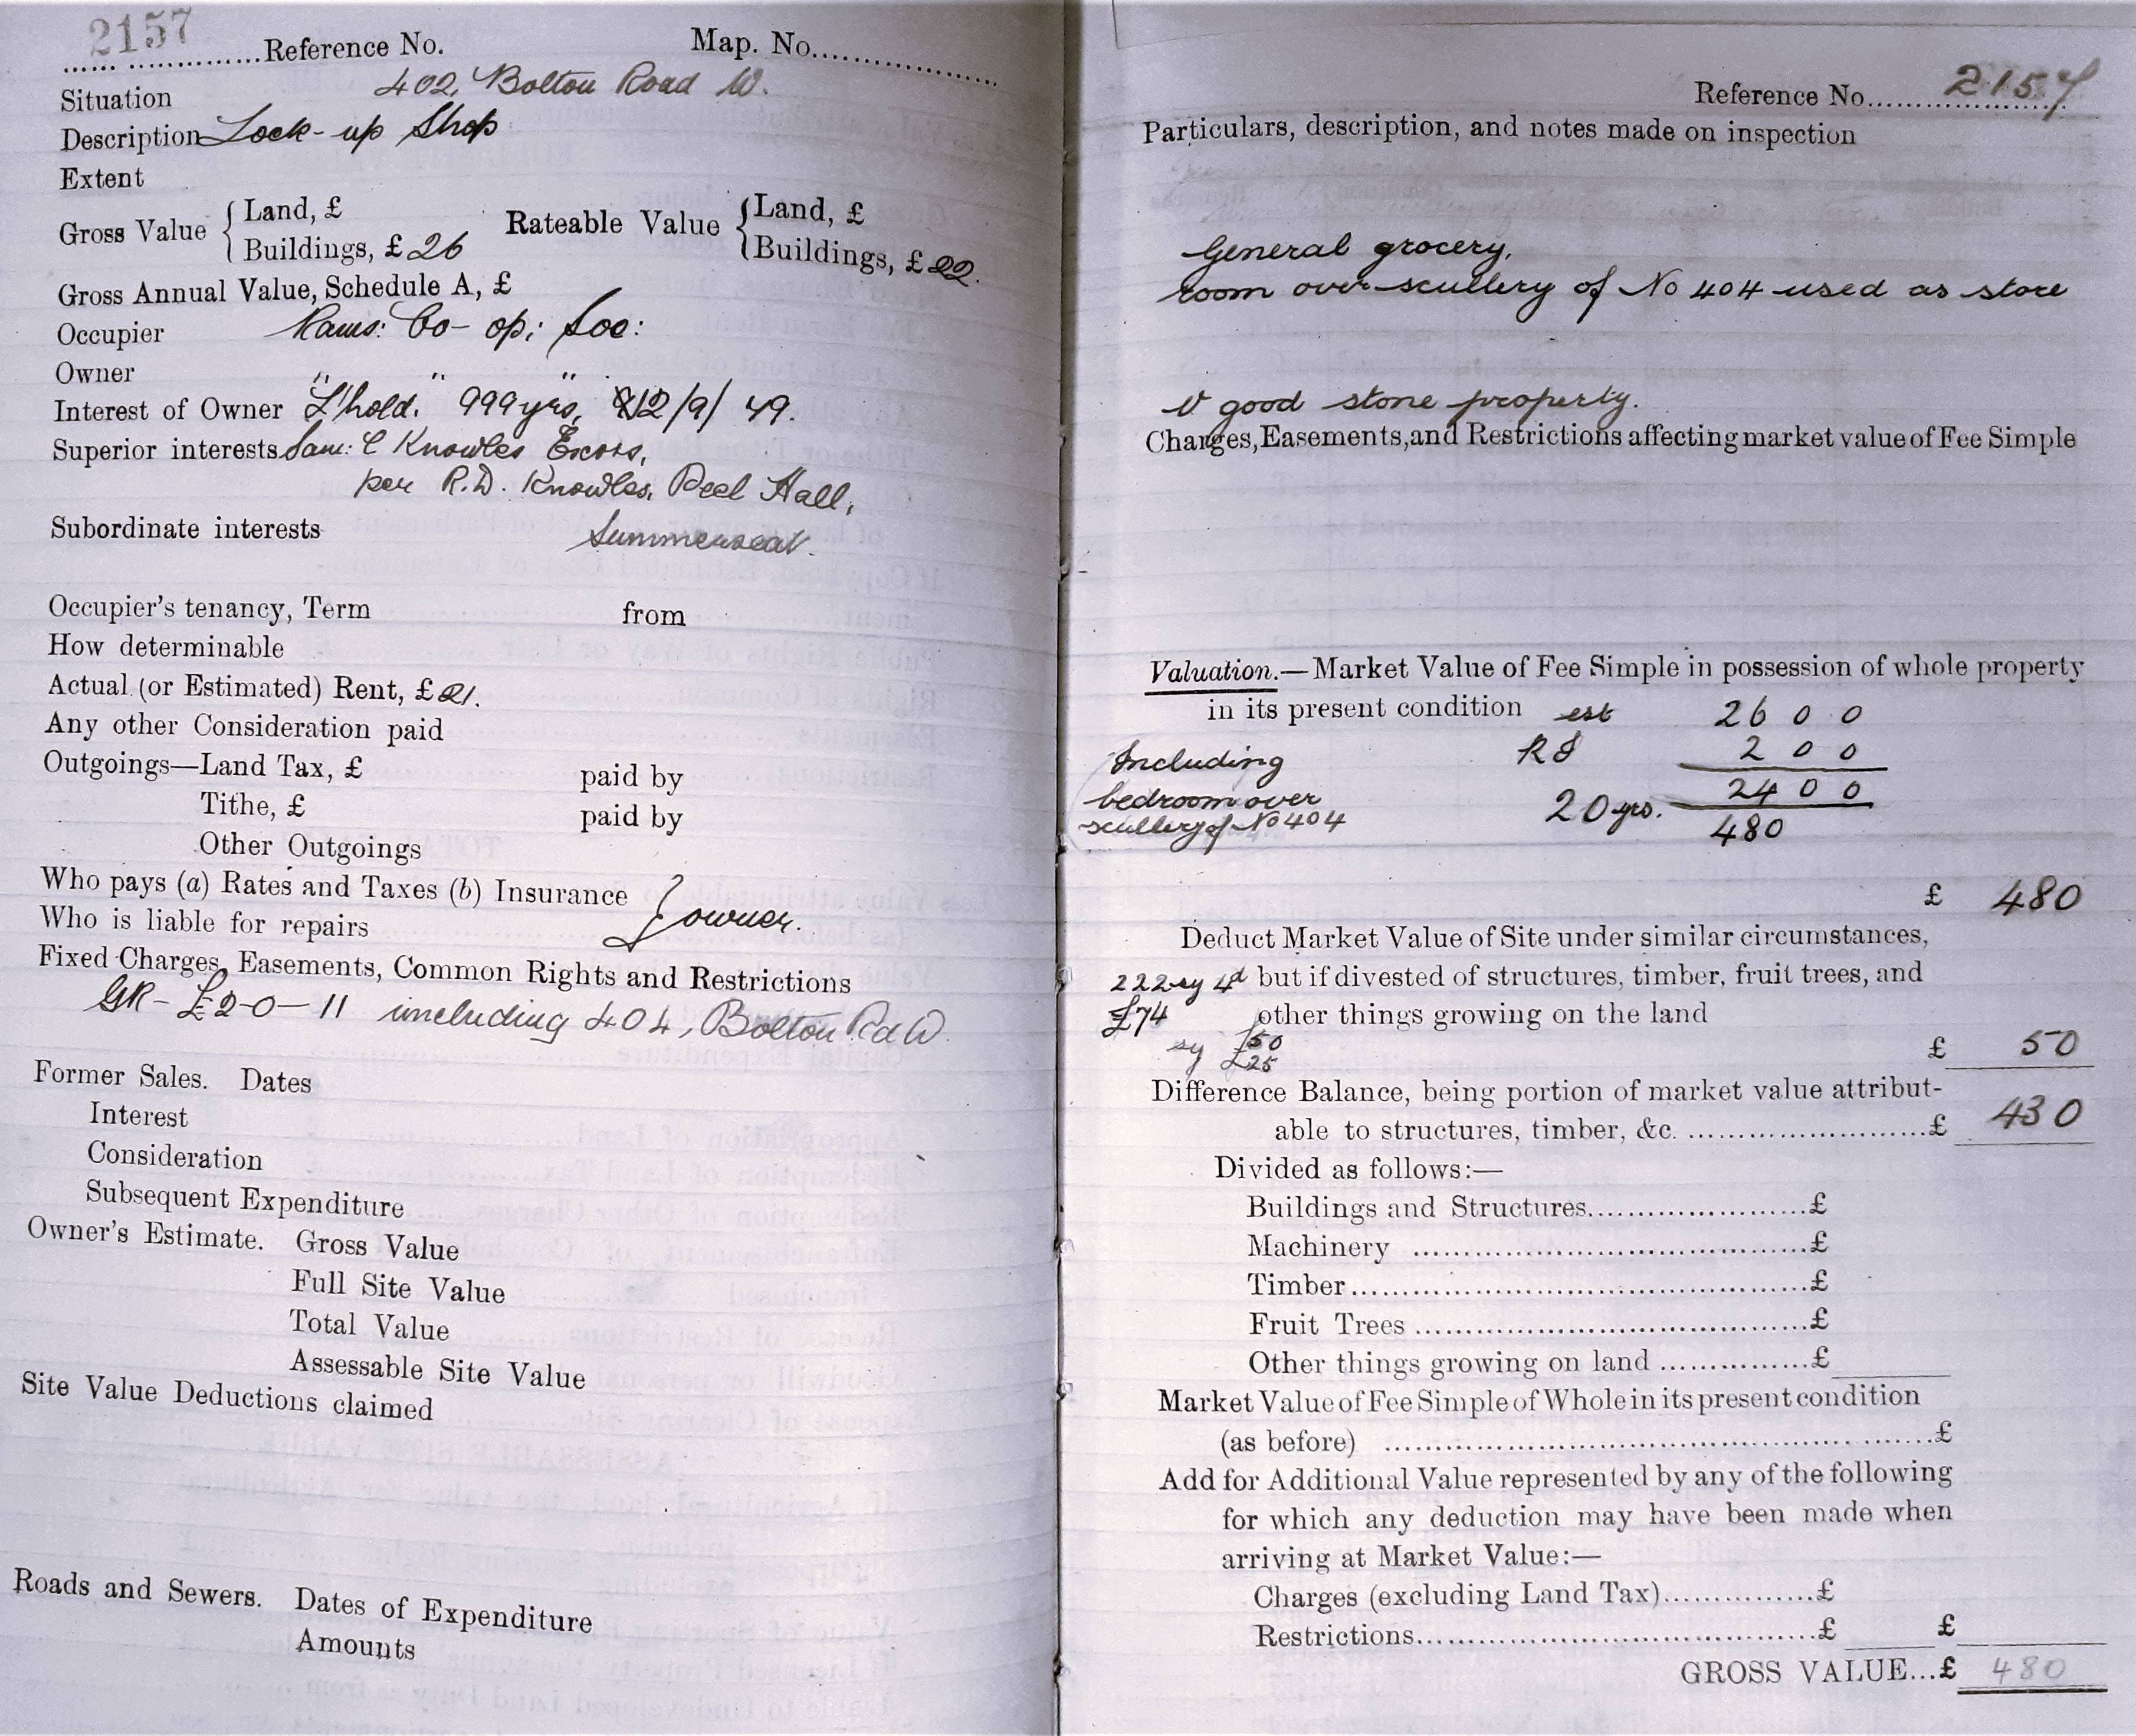 2157
Reference No. Map. No.
Situation 402, Bolton Road W.
Description Lock-up Shop
Extent
Gross Value { Land, £ Rateable Value { Land, £
Buildings, £ 26 Buildings, £ 22.
Gross Annual Value, Schedule A, £
Occupier Rams: Co-op: Soc:
Owner " " "
Interest of Owner L'hold. 999 yrs, 12/9/49.
Superior interests Sam: C Knowles Excors,
per R.D. Knowles, Peel Hall,
Summerseat.
Subordinate interests
Occupier's tenancy, Term from
How determinable
Actual (or Estimated) Rent, £ 21.
Any other Consideration paid
Outgoings—Land Tax, £ paid by
Tithe, £ paid by
Other Outgoings
Who pays (a) Rates and Taxes (b) Insurance
Who is liable for repairs } owner.
Fixed Charges, Easements, Common Rights and Restrictions
GR - £2-0-11 including 404, Bolton Rd W.
Former Sales. Dates
Interest
Consideration
Subsequent Expenditure
Owner's Estimate. Gross Value
Full Site Value
Total Value
Assessable Site Value
Site Value Deductions claimed
Roads and Sewers. Dates of Expenditure
Amounts
Reference No. 2157
Particulars, description, and notes made on inspection
General grocery,
room over scullery of No 404 used as store
V good stone property.
Charges, Easements, and Restrictions affecting market value of Fee Simple
Valuation.—Market Value of Fee Simple in possession of whole property
in its present condition est 26 0 0
Including R&I 2 0 0
bedroom over 24 0 0
scullery of No 404 20 yrs. 480
£ 480
Deduct Market Value of Site under similar circumstances,
222 sy 4d but if divested of structures, timber, fruit trees, and
£74 other things growing on the land
sy £50
£25
£ 50
Difference Balance, being portion of market value attribut-
able to structures, timber, &c. £ 430
Divided as follows:—
Buildings and Structures £
Machinery £
Timber £
Fruit Trees £
Other things growing on land £
Market Value of Fee Simple of Whole in its present condition
(as before) £
Add for Additional Value represented by any of the following
for which any deduction may have been made when
arriving at Market Value:—
Charges (excluding Land Tax) £
Restrictions £ £
GROSS VALUE...£ 480